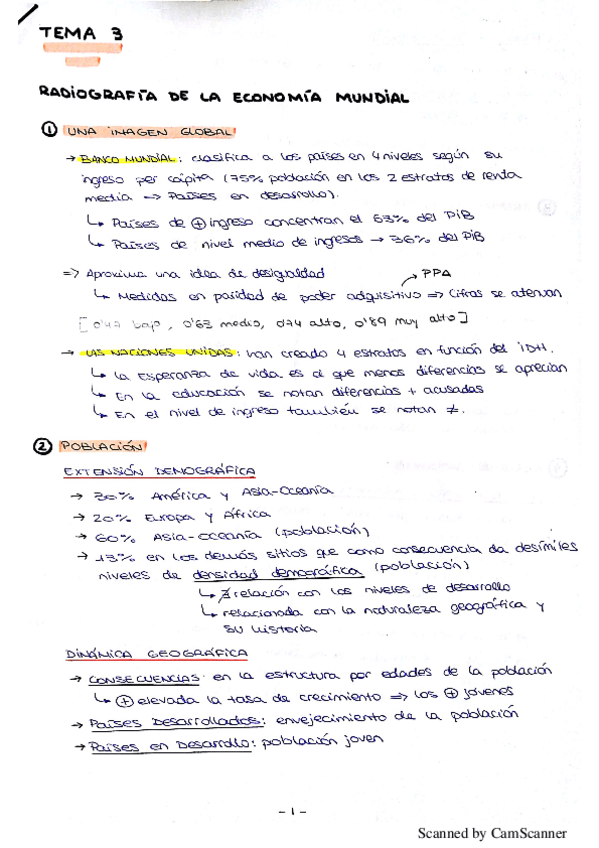 TEMA 3
RADIOGRAFÍA DE LA ECONOMÍA MUNDIAL
① UNA IMAGEN GLOBAL
→ BANCO MUNDIAL: clasifica a los países en 4 niveles según su
ingreso per cápita (75% población en los 2 estratos de renta
media => Países en desarrollo).
↳ Países de ⊕ ingreso concentran el 63% del PIB
↳ Países de nivel medio de ingresos → 36% del PIB
=> Aproxima una idea de desigualdad
PPA
↳ Medidas en paridad de poder adquisitivo => Cifras se atenúan
[0'47 bajo, 0'63 medio, 0'74 alto, 0'89 muy alto]
→ LAS NACIONES UNIDAS: han creado 4 estratos en función del IDH.
↳ La esperanza de vida es al que menos diferencias se aprecian
↳ En la educación se notan diferencias + acusadas
↳ En el nivel de ingreso también se notan ≠.
② POBLACIÓN
EXTENSIÓN DEMOGRÁFICA
→ 30% América y Asia-Oceanía
→ 20% Europa y África
→ 60% Asia-Oceanía (población)
→ 13% en los demás sitios que como consecuencia da desímiles
niveles de densidad demográfica (población)
↳ ∄ relación con los niveles de desarrollo
↳ relacionada con la naturaleza geográfica y
su historia
DINÁMICA GEOGRÁFICA
→ CONSECUENCIAS: en la estructura por edades de la población
↳ ⊕ elevada la tasa de crecimiento => los ⊕ jóvenes
→ Países Desarrollados: envejecimiento de la población
→ Países en Desarrollo: población joven
- 1 -
Scanned by CamScanner